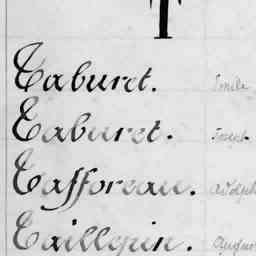 T
Taburet. Emile
Taburet. Joseph
Tafforeau. Adolph
Taillepin. Augus